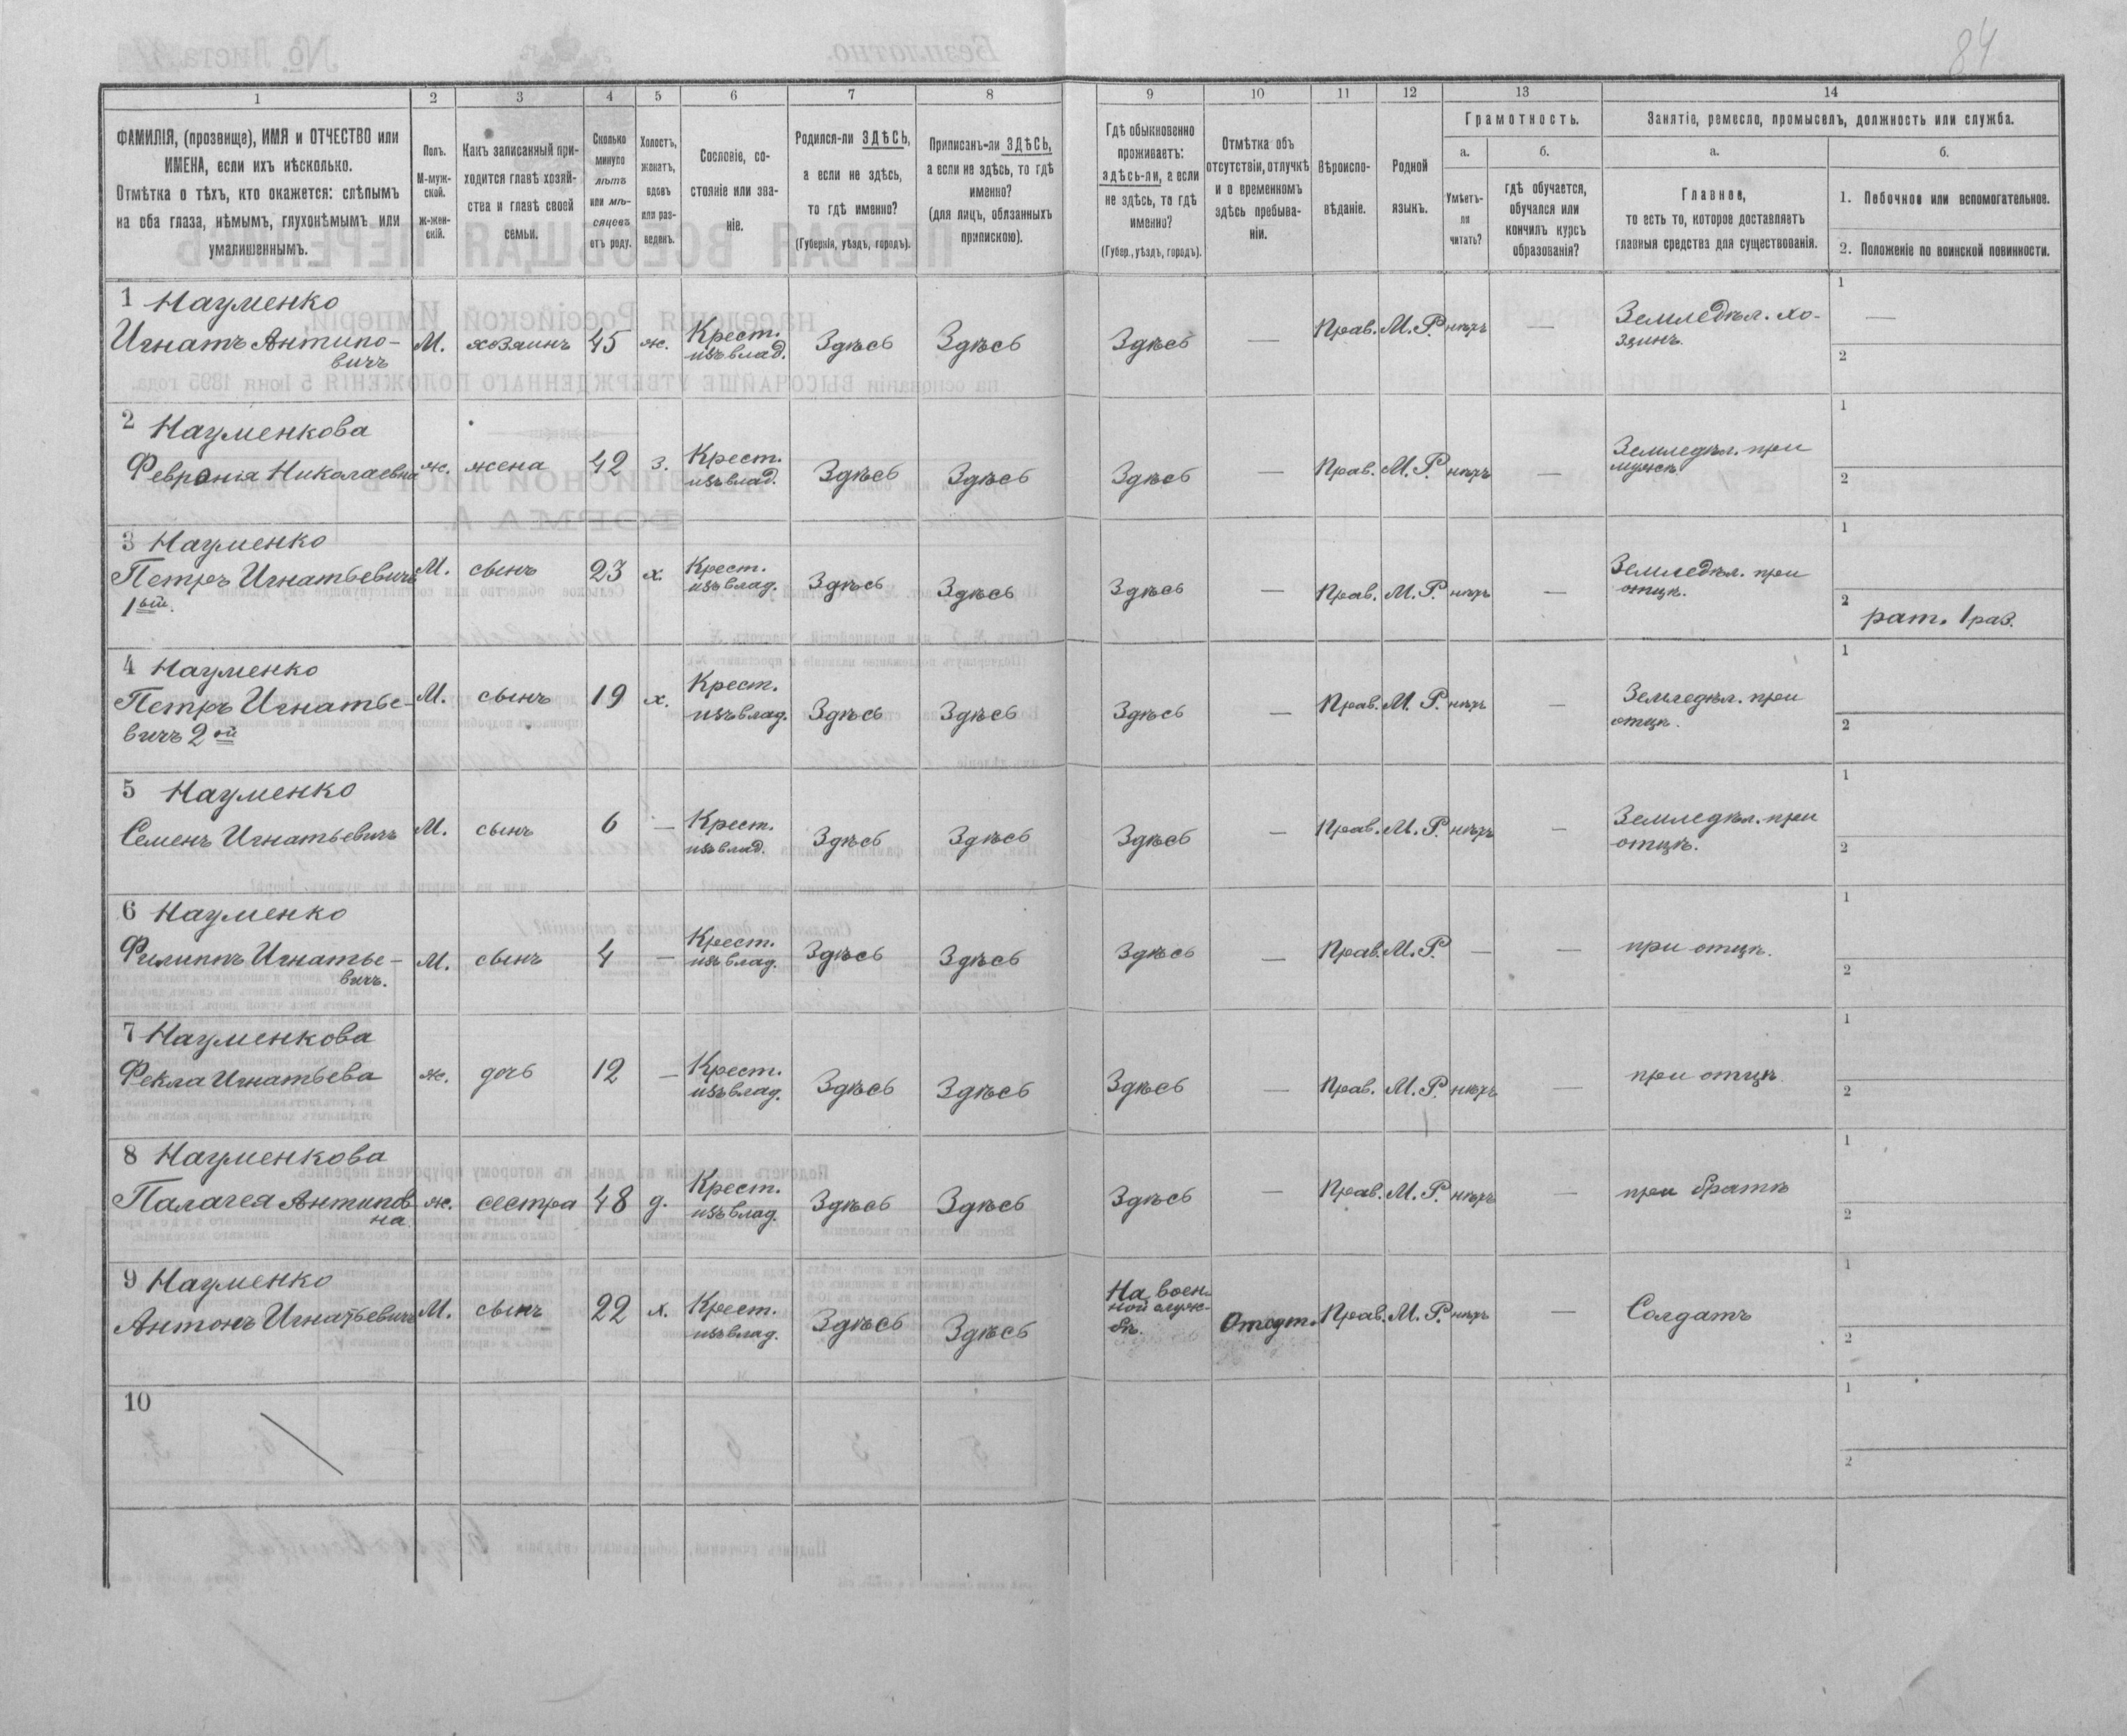 84
1 2 3 4 5 6 7 8 9 10 11 12 13 14
ФАМИЛІЯ, (прозвище), ИМЯ и ОТЧЕСТВО или
ИМЕНА, если ихъ нѣсколько.
Отмѣтка о тѣхъ, кто окажется: слѣпымъ
на оба глаза, нѣмымъ, глухонѣмымъ или
умалишеннымъ.
Полъ.
М-муж-
ской.
ж-жен-
скій.
Какъ записанный при-
ходится главѣ хозяй-
ства и главѣ своей
семьи.
Сколько
минуло
лѣтъ
или мѣ-
сяцевъ
отъ роду.
Холостъ,
женатъ,
вдовъ
или раз-
веденъ.
Сословіе, со-
стояніе или зва-
ніе.
Родился-ли ЗДѢСЬ,
а если не здѣсь,
то гдѣ именно?
(Губернія, уѣздъ, городъ).
Приписанъ-ли ЗДѢСЬ,
а если не здѣсь, то гдѣ
именно?
(для лицъ, обязанныхъ
припискою).
Гдѣ обыкновенно
проживаетъ:
здѣсь-ли, а если
не здѣсь, то гдѣ
именно?
(Губер., уѣздъ, городъ).
Отмѣтка объ
отсутствіи, отлучкѣ
и о временномъ
здѣсь пребыва-
ніи.
Вѣроиспо-
вѣданіе.
Родной
языкъ.
Грамотность.
а.
Умѣетъ-
ли
читать?
б.
гдѣ обучается,
обучался или
кончилъ курсъ
образованія?
Занятіе, ремесло, промыселъ, должность или служба.
а.
Главное,
то есть то, которое доставляетъ
главныя средства для существованія.
б.
1. Побочное или вспомогательное.
2. Положеніе по воинской повинности.
1 Науменко
Игнатъ Антипо-
вичъ
М. хозяинъ 45 ж. Крест.
изъ влад.
Здѣсь Здѣсь Здѣсь — Прав. М.Р. нѣтъ — Земледѣл. хо-
зяинъ.
1 —
2
2 Науменкова
Февронія Николаевна
ж. жена 42 з. Крест.
изъ влад.
Здѣсь Здѣсь Здѣсь — Прав. М.Р. нѣтъ — Земледѣл. при
мужѣ.
1
2
3 Науменко
Петръ Игнатьевичъ
1ый.
М. сынъ 23 х. Крест.
изъ влад.
Здѣсь Здѣсь Здѣсь — Прав. М.Р. нѣтъ — Земледѣл. при
отцѣ.
1
2 рат. 1 раз.
4 Науменко
Петръ Игнатье-
вичъ 2ой
М. сынъ 19 х. Крест.
изъ влад.
Здѣсь Здѣсь Здѣсь — Прав. М.Р. нѣтъ — Земледѣл. при
отцѣ.
1
2
5 Науменко
Семенъ Игнатьевичъ
М. сынъ 6 — Крест.
изъ влад.
Здѣсь Здѣсь Здѣсь — Прав. М.Р. нѣтъ — Земледѣл. при
отцѣ.
1
2
6 Науменко
Филиппъ Игнатье-
вичъ.
М. сынъ 4 — Крест.
изъ влад.
Здѣсь Здѣсь Здѣсь — Прав. М.Р. — — при отцѣ.
1
2
7 Науменкова
Фекла Игнатьева
ж. дочь 12 — Крест.
изъ влад.
Здѣсь Здѣсь Здѣсь — Прав. М.Р. нѣтъ — при отцѣ
1
2
8 Науменкова
Палагея Антипов
на
ж. сестра 48 д. Крест.
изъ влад.
Здѣсь Здѣсь Здѣсь — Прав. М.Р. нѣтъ — при братѣ
1
2
9 Науменко
Антонъ Игнатьевичъ
М. сынъ 22 х. Крест.
изъ влад.
Здѣсь Здѣсь На воен-
ной служ-
бѣ.
Отсут. Прав. М.Р. нѣтъ — Солдатъ
1
2
10
1
2